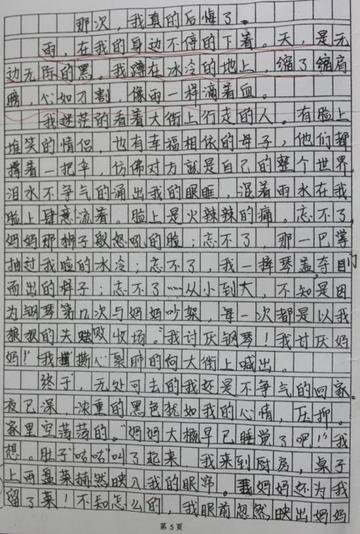 那次，我真的后悔了。
雨，在我的身边不停的下着。天，是无
边无际的黑。我蹲在冰冷的地上，缩了缩肩
膀，心如刀割，像雨一样滴着血。
我迷茫的看着大街上行走的人。有脸上
堆笑的情侣，也有幸福相依的母子，他们都
撑着一把伞，仿佛对方就是自己的整个世界。
泪水不争气的涌出我的眼眶，混着雨水在我
脸上肆意流着。脸上是火辣辣的痛。忘不了，
妈妈那狮子般怒吼的脸；忘不了，那一巴掌
抽过我脸的冰冷；忘不了，我一摔琴盖夺门
而出的样子；忘不了……从小到大，不知是因
为钢琴第几次与妈妈吵架，每一次都是以我
狠狠的失败收场。“我讨厌钢琴！我讨厌妈
妈！”我撕心裂肺的向大街上喊出。
终于，无处可去的我还是不争气的回家。
夜已深，浓重的黑色犹如我的心情，压抑。
家里空荡荡的。“妈妈大概早已睡觉了吧！”我
想。肚子“咕咕”叫了起来，我来到厨房，桌子
上两盘菜赫然映入我的眼帘。妈妈还为我
留了菜！不知怎么的，我眼前忽然映出妈妈
第5页